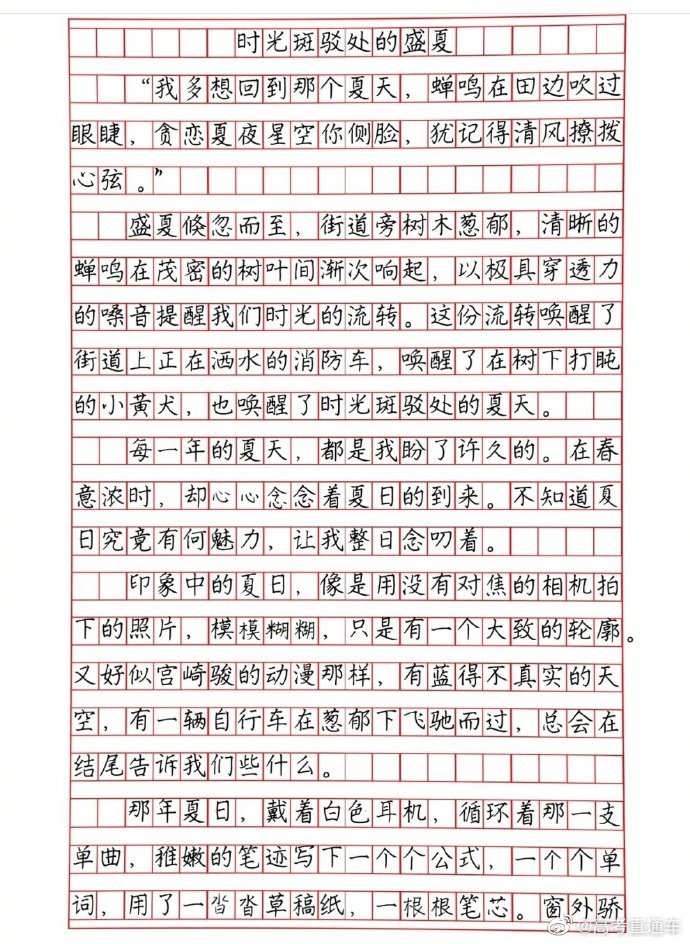 时光斑驳处的盛夏
“我多想回到那个夏天，蝉鸣在田边吹过
眼睫，贪恋夏夜星空你侧脸，犹记得清风撩拨
心弦。”
盛夏倏忽而至，街道旁树木葱郁，清晰的
蝉鸣在茂密的树叶间渐次响起，以极具穿透力
的嗓音提醒我们时光的流转。这份流转唤醒了
街道上正在洒水的消防车，唤醒了在树下打盹
的小黄犬，也唤醒了时光斑驳处的夏天。
每一年的夏天，都是我盼了许久的。在春
意浓时，却心心念念着夏日的到来。不知道夏
日究竟有何魅力，让我整日念叨着。
印象中的夏日，像是用没有对焦的相机拍
下的照片，模模糊糊，只是有一个大致的轮廓。
又好似宫崎骏的动漫那样，有蓝得不真实的天
空，有一辆自行车在葱郁下飞驰而过，总会在
结尾告诉我们些什么。
那年夏日，戴着白色耳机，循环着那一支
单曲，稚嫩的笔迹写下一个个公式，一个个单
词，用了一沓沓草稿纸，一根根笔芯。窗外骄
@高考直通车